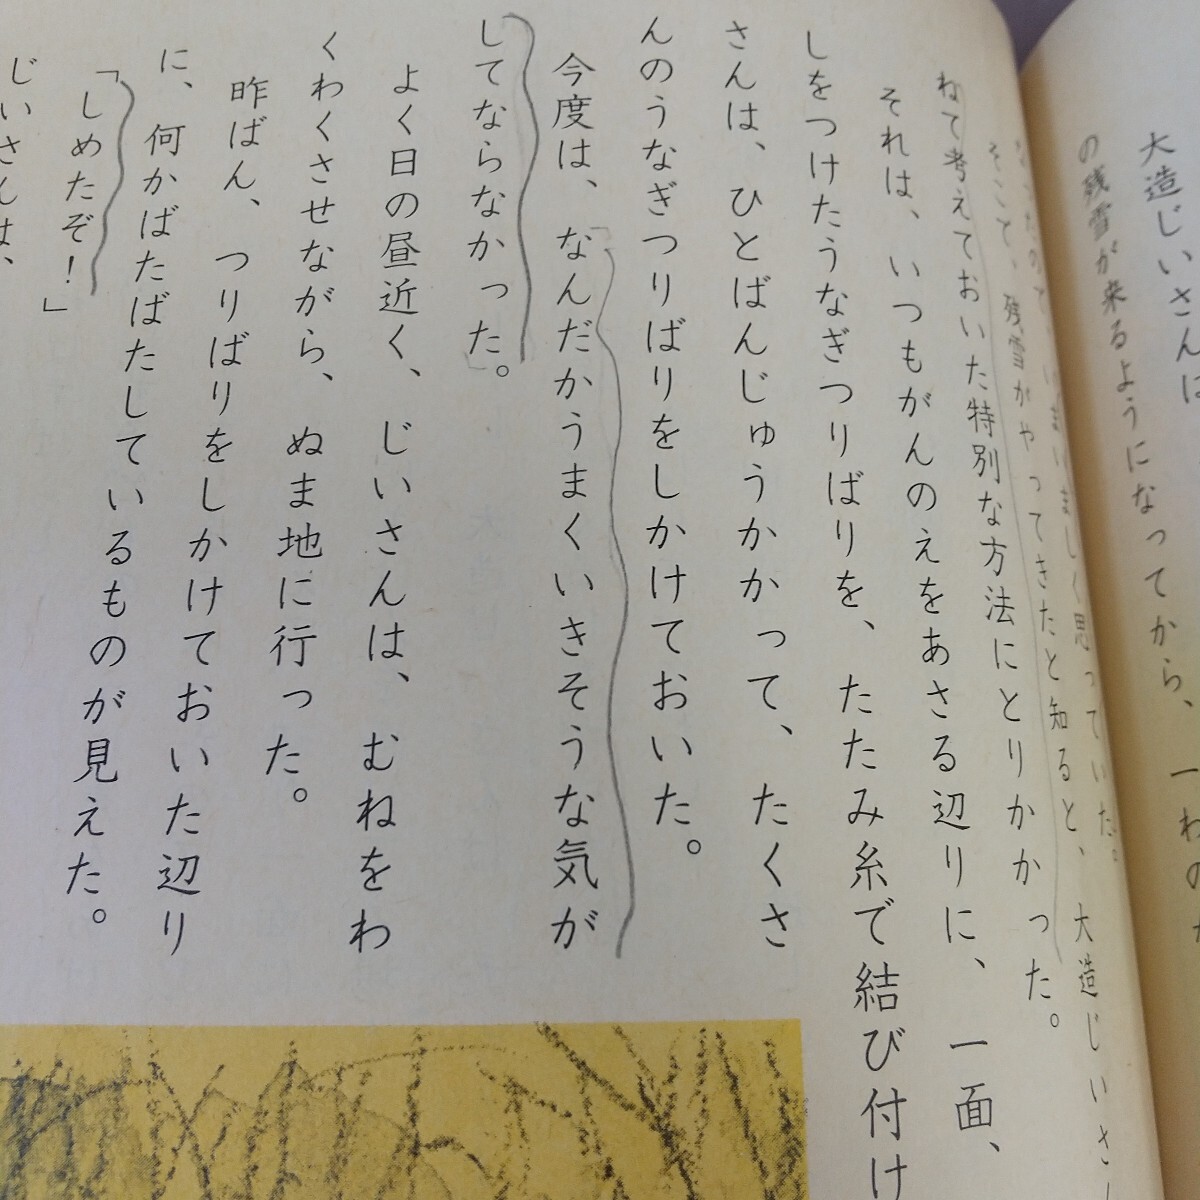 大造じいさんは
の残雪が来るようになってから、一わの
いまいましく思っていた。
そこで、残雪がやってきたと知ると、大造じいさ
ねて考えておいた特別な方法にとりかかった。
それは、いつもがんのえをあさる辺りに、一面、
しをつけたうなぎつりばりを、たたみ糸で結び付け
さんは、ひとばんじゅうかかって、たくさ
んのうなぎつりばりをしかけておいた。
今度は、なんだかうまくいきそうな気が
してならなかった。
よく日の昼近く、じいさんは、むねをわ
くわくさせながら、ぬま地に行った。
昨ばん、つりばりをしかけておいた辺り
に、何かばたばたしているものが見えた。
「しめたぞ！」
じいさんは、